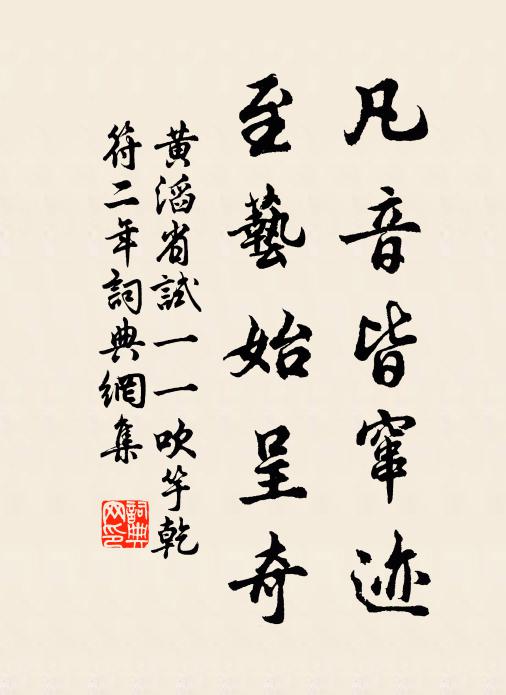 凡音皆窜迹
至藝始呈奇
黄滔省試一一吹竽乾
符二年詞典網集
詞典
网印